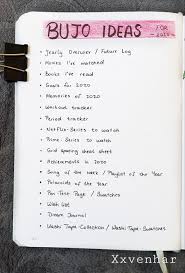 BUJO IDEAS FOR 2020
• Yearly Overview / Future Log
• Movies I've watched
• Books I've read
• Goals for 2020
• Memories of 2020
• Workout tracker
• Period tracker
• Netflix-Series to watch
• Prime-Series to watch
• Grid spacing cheat sheet
• Achievements in 2020
• Song of the week / Playlist of the Year
• Polaroids of the Year
• Pen Test Page / Swatches
• Wish List
• Dream Journal
• Washi Tape Collection / Washi Tape Swatches
Xxvenhar